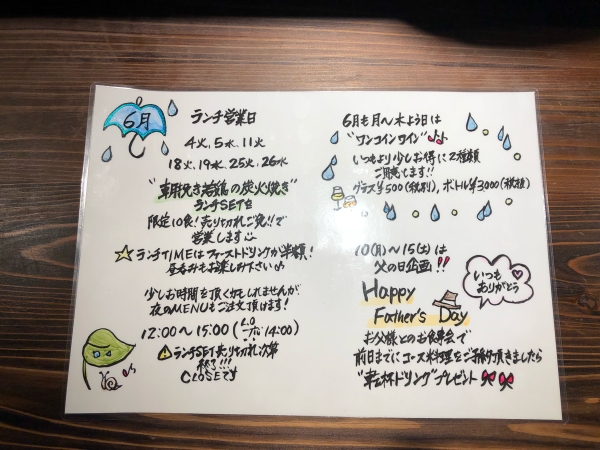 6月
ランチ営業日
4火、5水、11火
18火、19水、25火、26水
"朝挽き若鶏の炭火焼き"
ランチSETを
限定10食!売り切れご免!!で
営業します
☆ランチTIMEはファーストドリンクが半額!
昼呑みもお楽しみ下さい♪
少しお時間を頂くかもしれませんが
夜のMENUもご注文頂けます!
12:00〜15:00(L.O 14:00)
ランチSET売り切れ次第
終了!!!
CLOSEです
6月も月〜木よう日は
"ワンコインワイン"♪♪
いつもより少しお得に2種類
ご用意してます!!
グラス¥500(税別)、ボトル¥3,000(税抜)
10(月)〜15(土)は
父の日企画!!
いつも
ありがとう
Happy
Father's Day
お父様とのお食事会で
前日までにコース料理をご予約頂きましたら
"乾杯ドリンク"プレゼント